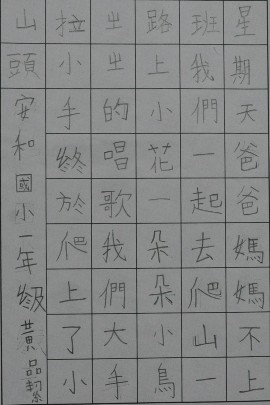 星期天爸爸媽媽不上
班我們一起去爬山一
路上小花一朵朵小鳥
出出的唱歌我們大手
拉小手終於爬上了小
山頭
安和國小一年級黃品絜